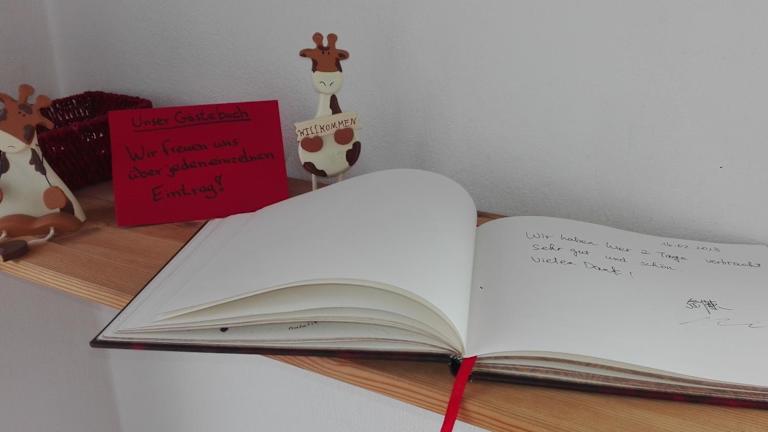 Unser Gästebuch
Wir freuen uns
über jeden einzelnen
Eintrag!
WILLKOMMEN
16.02.2013
Wir haben hier 2 Tage verbracht
Sehr gut und schön
Vielen Dank!